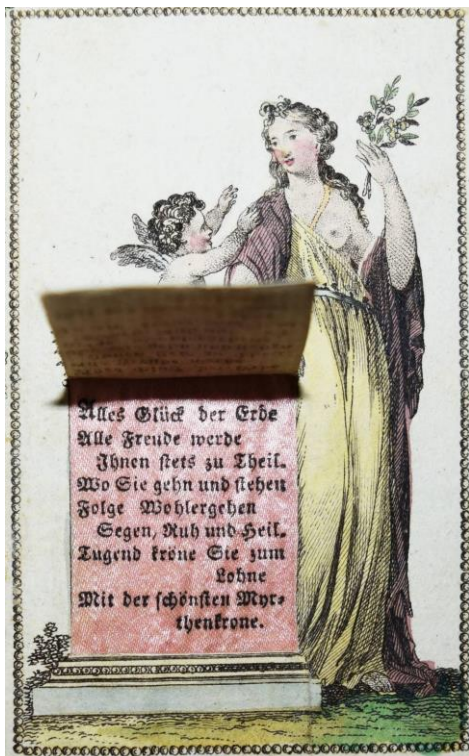 Alles Glück der Erde
Alle Freude werde
Ihnen stets zu Theil.
Wo Sie gehn und stehen
Folge Wohlergehen
Segen, Ruh und Heil.
Tugend kröne Sie zum
Lohne
Mit der schönsten Myr-
thenkrone.